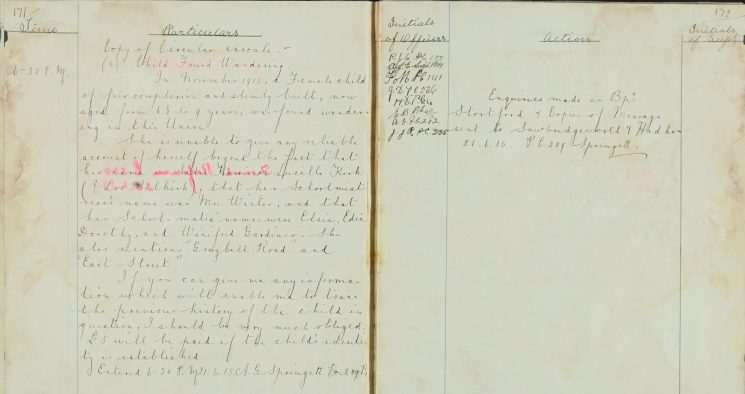 171
Time
Particulars
6-30 P.M.
Copy of Circular enroute.-
Child Found Wandering.
In November 1913, a Female child
of fair complexion and slimly built, now
aged from 8½ to 9 years, was found wander-
ing in this Union.
She is unable to give any reliable
account of herself beyond the fact that
her name Lucilla Kirk
that her Schoolmist
ress's name was Mrs. Winter, and that
her School-mates' names were Elsie, Edie,
Dorothy, and Winifred Gardiner. She
also mentions "Graybell Road" and
"East Street."
If you can give me any informa-
tion which will enable me to trace
the previous history of the child in
question, I should be very much obliged.
£5 will be paid if the child's identi-
ty is established.
Entered 6-30 P.M. 21.6.15. A G. Springett
172
Initials
of Officers
Action
Initials
of Supt
Enquiries made in Bp's
Stortford & Copies of Message
sent to Sawbridgeworth & Hadham
21.6.15. P.C. 239 Springett.